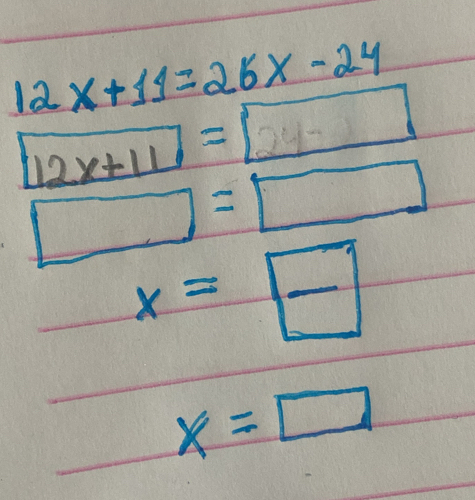 12x+11=26x-24
12x+11 =
=
x = —
x =